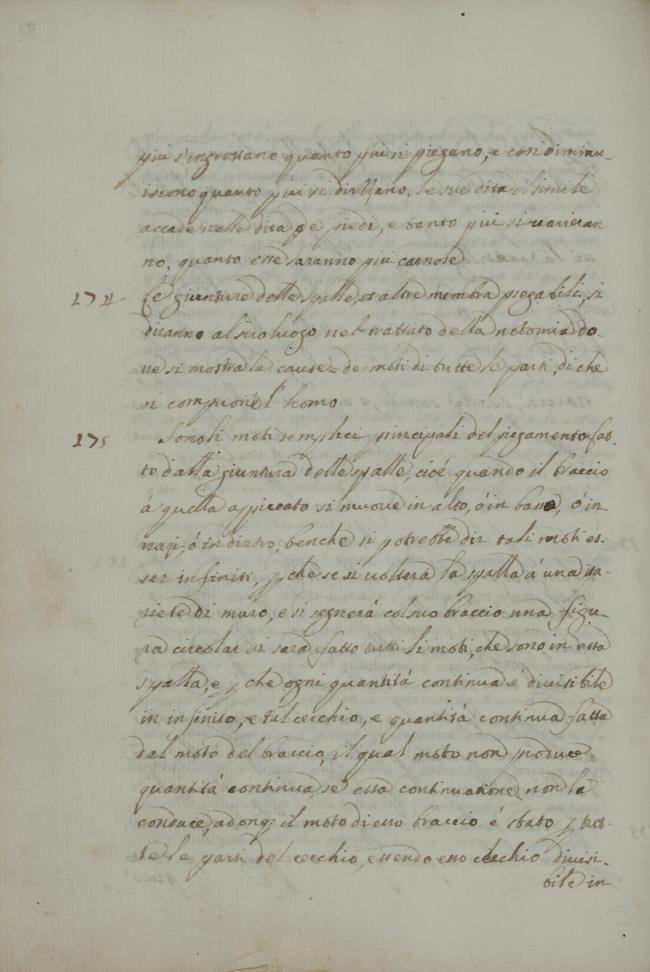 più s'ingrossano quanto più si piegano, e così diminu-
iscono quanto più si dirizzano, le sue dita il simile
accade nelle dita de piedi, e tanto più si varieran
no, quanto esse saranno più carnose
174 Le giunture delle spalle, et altre membra piegabili, si
diranno al suo luogo nel trattato della notomia do-
ve si mostra le cause de moti di tutte le parti, di che
si compone l'homo
175 Sono li moti semplici principali del piegamento fat-
to dalla giuntura delle spalle, cioè quando il braccio
à quella appiccato si muove in alto, ò in basso, ò in-
nazi, ò in dietro, benche si potrebbe dir tali moti es-
ser infiniti, p che se si volterà la spalla à una pa-
riete di muro, e si segnerà col suo braccio una figu-
ra circolar si sarà fatto tutti li moti, che sono in essa
spalla, e p che ogni quantità continua è divisibile
in infinito, e tal cerchio, e quantità continua fatta
dal moto del braccio, il qual moto non produce
quantità continua, se essa continuatione non la
conduce, adonq; il moto di esso braccio è stato p tut-
te le parti del cerchio, essendo esso cerchio divisi-
bile in-